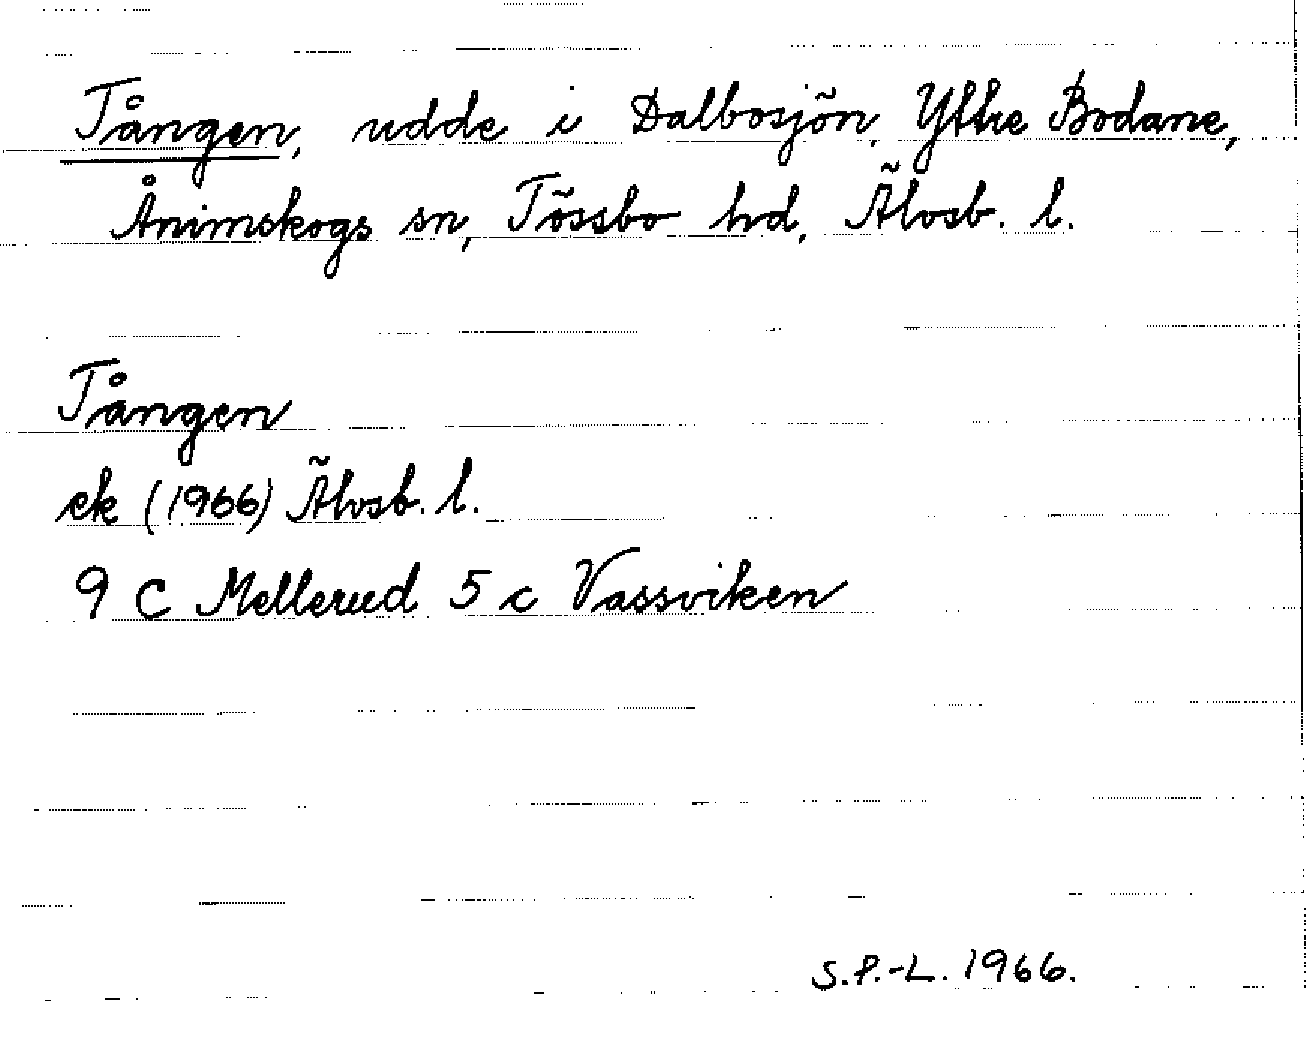 Tången, udde i Dalbosjön, Yttre Bodane,
Ånimskogs sn, Tössbo hd, Älvsb. l.
Tången
ek (1966) Älvsb. l.
9 C Mellerud 5 c Vassviken
S.P.-L. 1966.